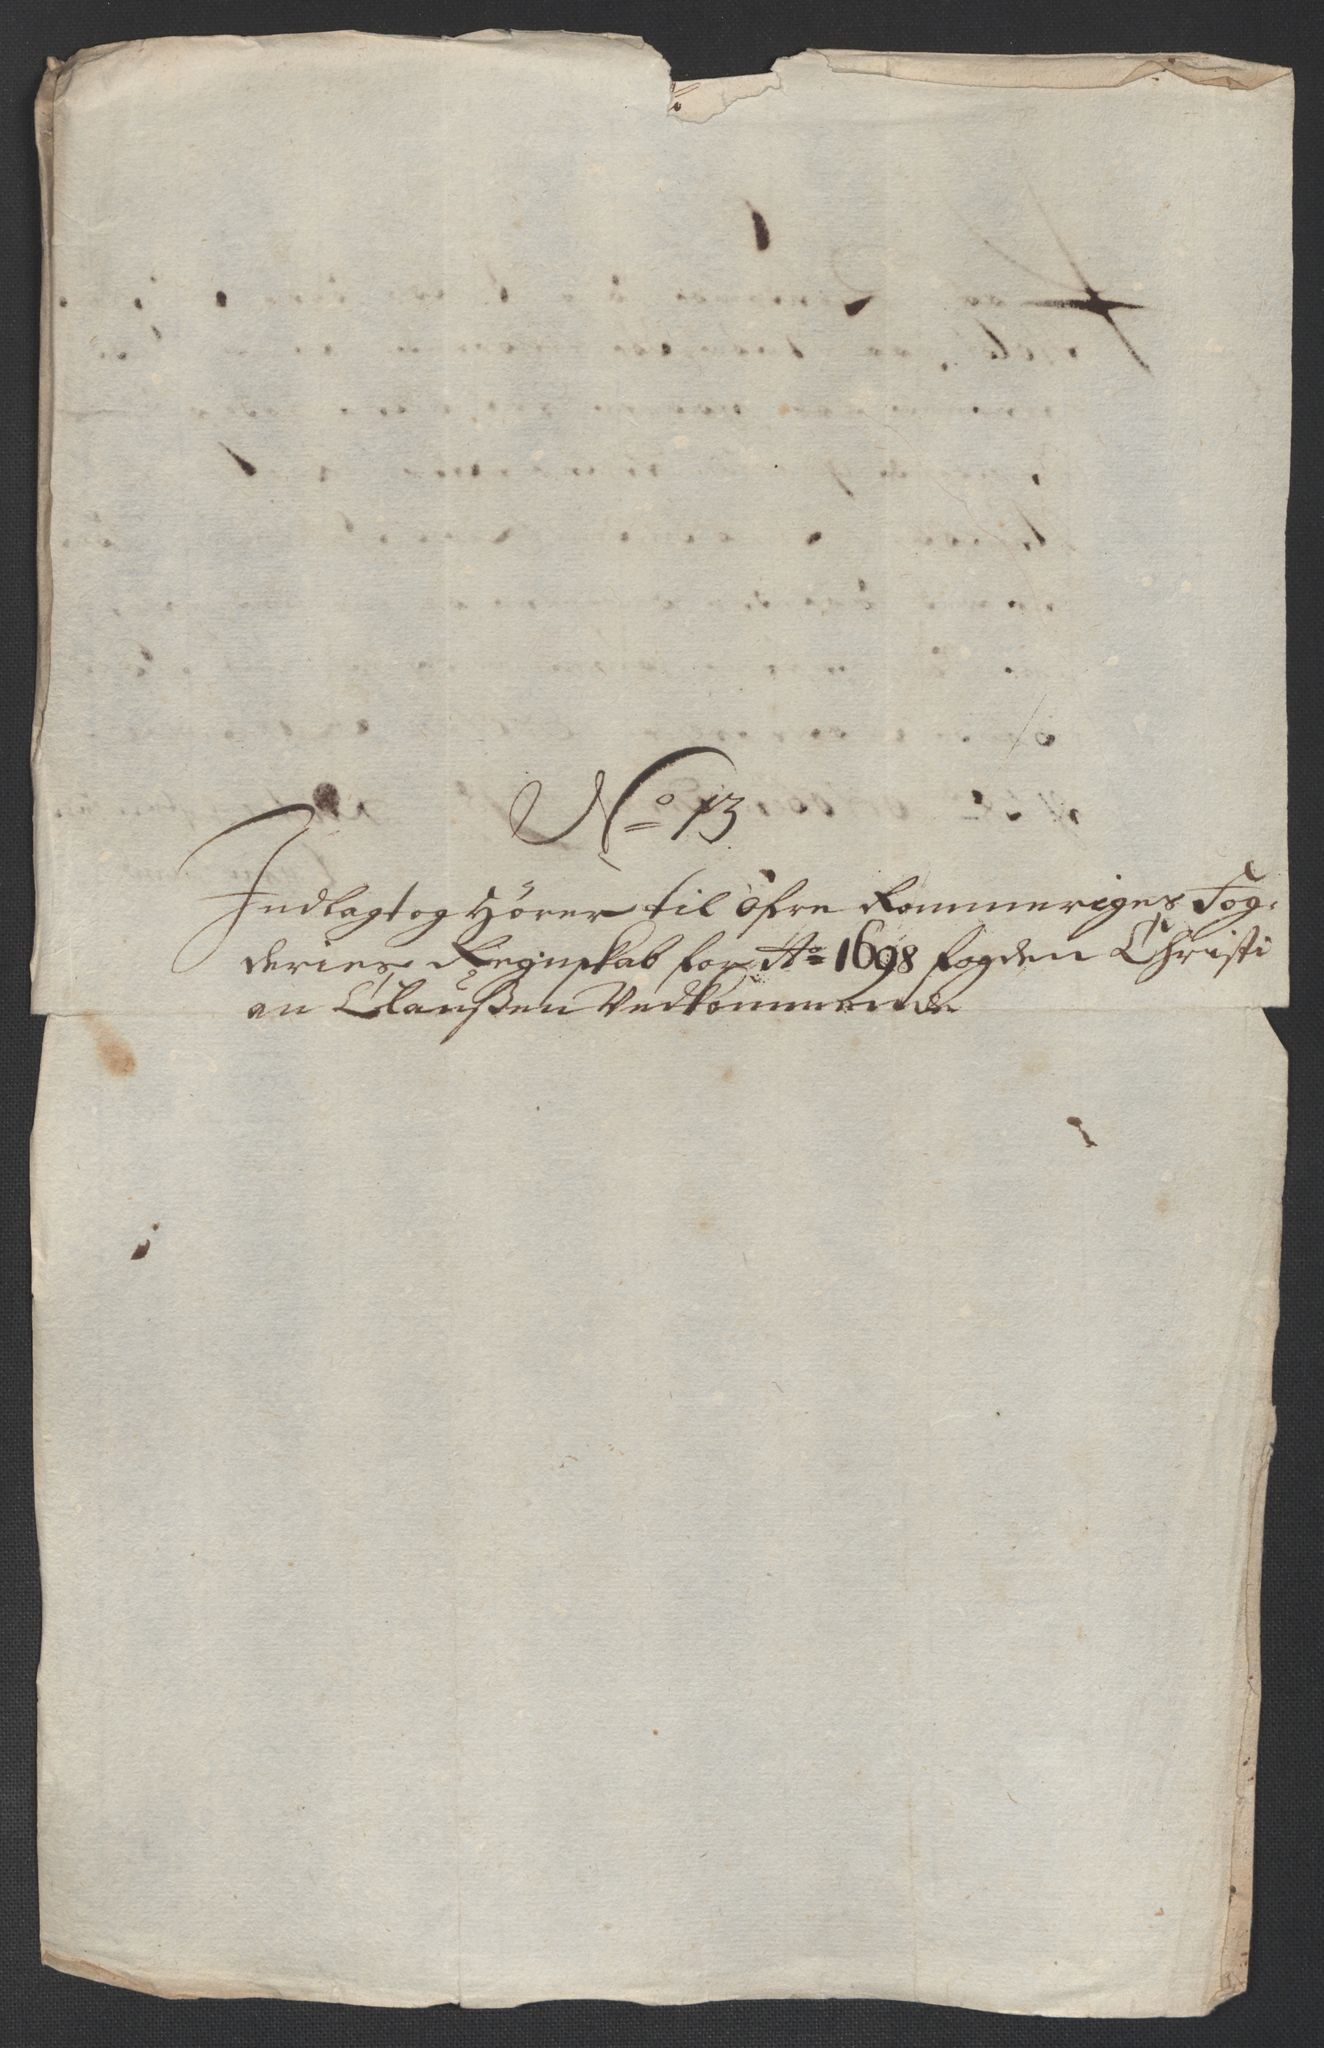 No 13
Indlagt og Hörer til öfre Rommeriges Fog-
deries Reginskab for Ao 1698 fogden Christi
an Claußen Vedkommende